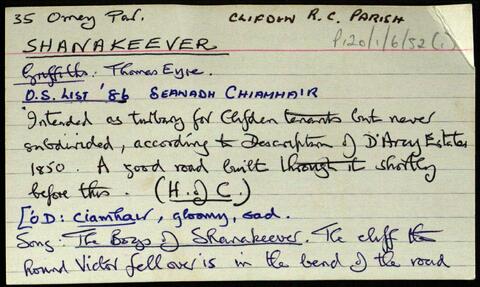 35 Omey Par. CLIFDEN R.C. PARISH
P120/1/6/52(i)
SHANAKEEVER
Griffith: Thomas Eyre.
O.S. LIST '86 SEANADH CHIAMHAIR
Intended as turbary for Clifden tenants but never
subdivided, according to Description of D'Arcy Estates
1850. A good road built through it shortly
before this. (H. of C.)
[ÓD: ciamhair, gloomy, sad.
Song: The Boys of Shanakeever. The cliff the
Hound Victor fell over is in the bend of the road